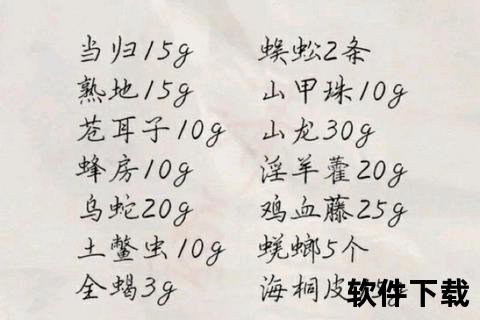 当归15g 蜈蚣2条
熟地15g 山甲珠10g
苍耳子10g 山龙30g
蜂房10g 淫羊藿20g
乌蛇20g 鸡血藤25g
土鳖虫10g 蜣螂5个
全蝎3g 海桐皮
软件下载